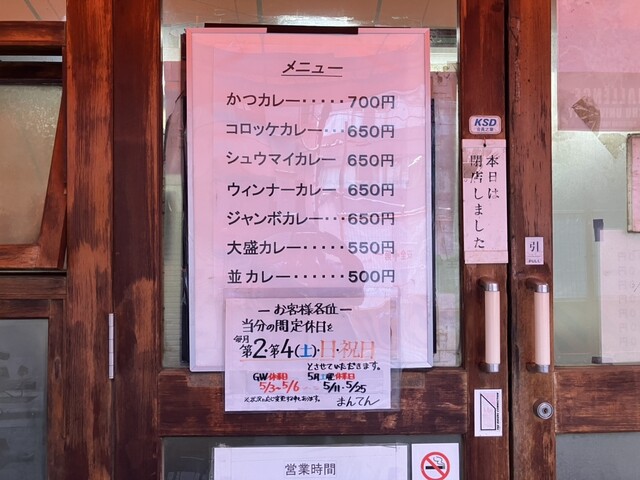 メニュー
かつカレー・・・・・700円
コロッケカレー・・・650円
シュウマイカレー 650円
ウィンナーカレー 650円
ジャンボカレー・・・650円
大盛カレー・・・・・550円
並カレー・・・・・500円
ーお客様各位ー
当分の間定休日を
毎月
第2・第4(土)・日・祝日
とさせていただきます。
GW休業日 5月土曜休業日
5/3~5/6 5/11・5/25
まんてん
営業時間
KSD
本日は
閉店しました
引
PULL